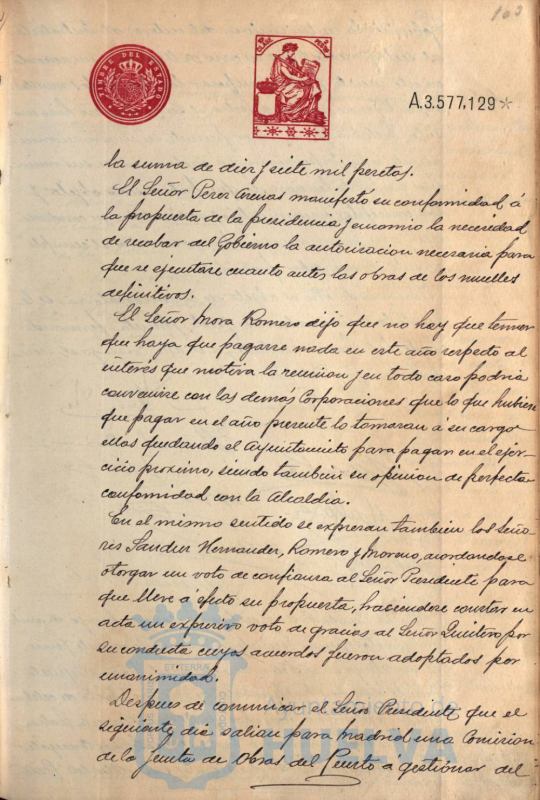 103
TIMBRE DEL ESTADO
A.3.577,129*
la suma de diez y siete mil pesetas.
El Señor Perez Arenas manifestó su conformidad á
la propuesta de la presidencia y encomio la necesidad
de recabar del Gobierno la autorizacion necesaria para
que se ejecutare cuanto antes las obras de los muelles
definitivos.
El Señor Mora Romero dijo que no hay que temer
que haya que pagarse nada en este año respecto al
interés que motiva la reunion y en todo caso podria
convenirse con las demás Corporaciones que lo que hubiere
que pagar en el año presente lo tomaran á su cargo
ellas quedando el Ayuntamiento para pagar en el ejer-
cicio proximo, siendo tambien su opinion de perfecta
conformidad con la Alcaldia.
En el mismo sentido se expresan tambien los Seño-
res Sander Hernander, Romero y Moreno, acordandose
otorgar un voto de confianza al Señor Presidente para
que lleve á efecto su propuesta, haciendose constar en
acta un expresivo voto de gracias al Señor Quintero por
su conducta cuyos acuerdos fueron adoptados por
unanimidad.
Despues de comunicar el Señor Presidente que el
siguiente dia salian para Madrid una Comision
de la Junta de Obras del Puerto á gestionar del
Ayuntamiento de
HUELVA